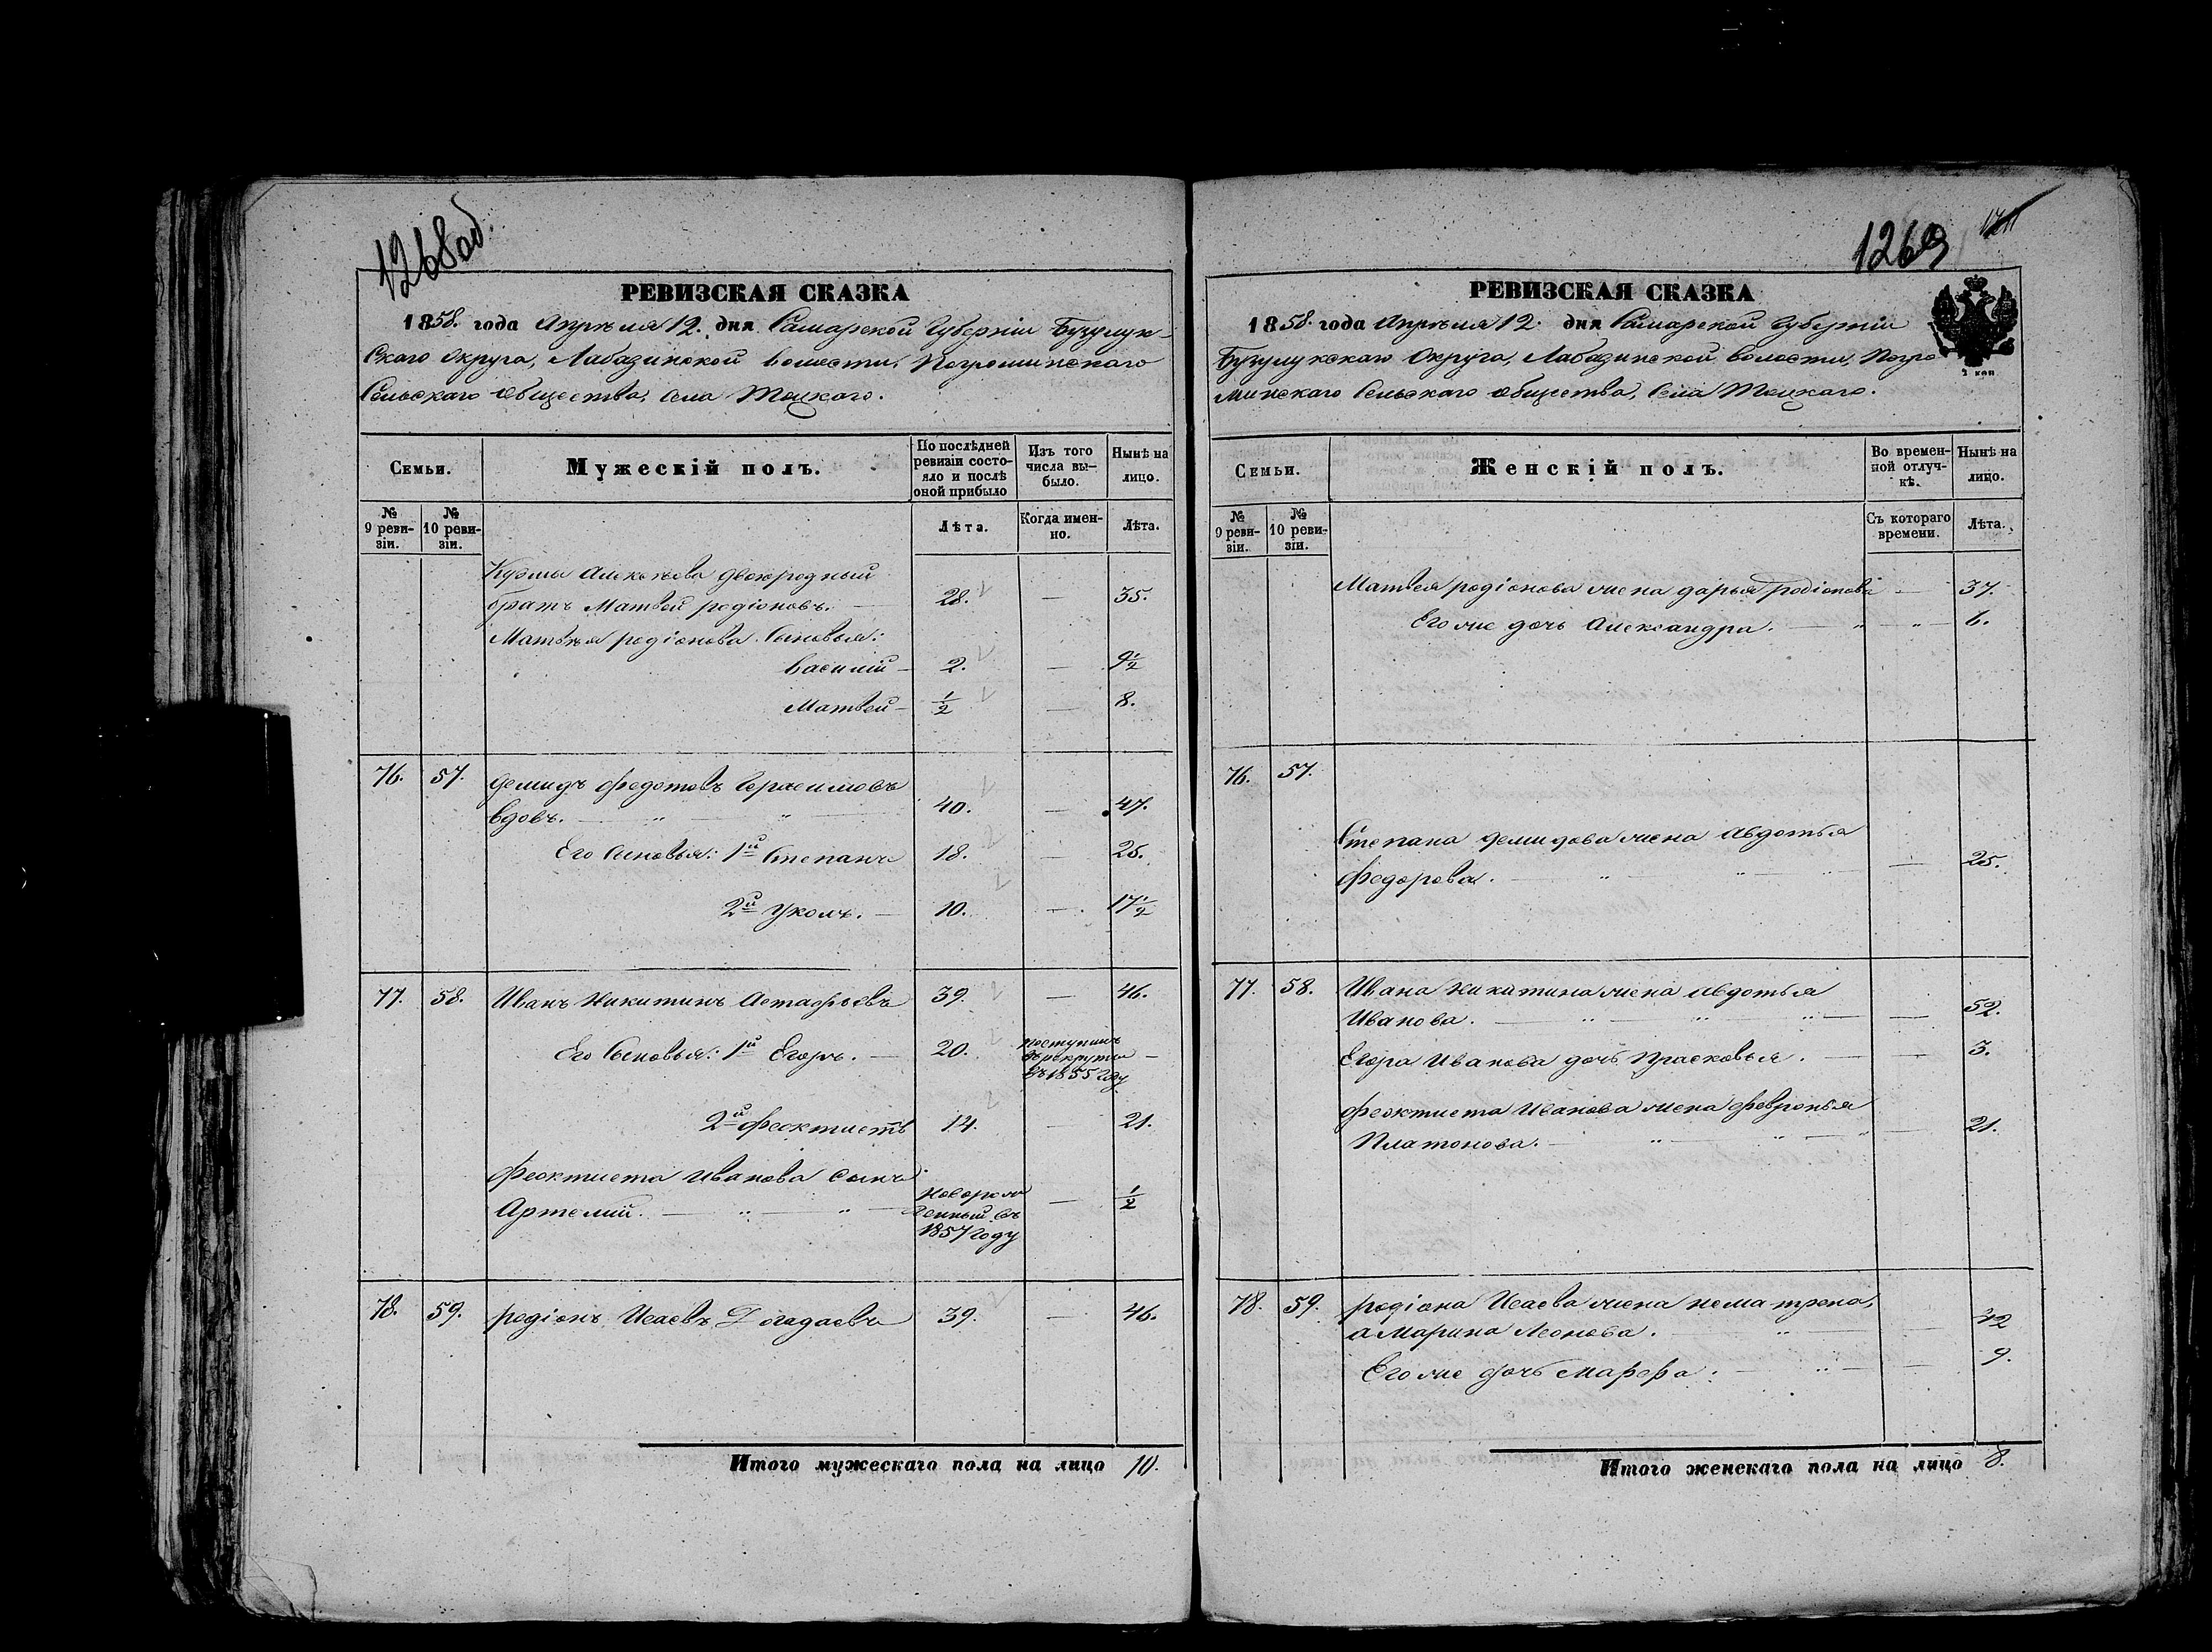 1268об.
РЕВИЗСКАЯ СКАЗКА
1858. года Апрѣля 12. дня Самарской Губерніи Бузулук-
скаго округа, Лабазинской волости, Погроминскаго
Сельскаго общества, села Тоцкаго.
Семьи.
Мужескій полъ.
По послѣдней ревизіи состояло и послѣ оной прибыло
Изъ того числа выбыло.
Нынѣ на лицо.
№ 9 ревизіи.
№ 10 ревизіи.
Лѣта.
Когда именно.
Лѣта.
Кузмы Алексѣева двоюродный
братъ Матвей родіоновъ. — 28. — 35.
Матвѣя родіонова Сыновья:
василій — 2. — 9½
Матвей — ½ — 8.
76. 57. демидъ федотовъ Герасимовъ
вдовъ. — " — " — 40. — 47.
Его Сыновья: 1й Степанъ 18. — 25.
2й Уколъ. — 10. — 17½
77. 58. Иванъ Никитинъ Астафьевъ 39. — 46.
Его Сыновья: 1й Егоръ. — 20. поступилъ
въ рекруты —
въ 1855 году
2й феоктистъ 14. — 21.
феоктиста Иванова сынъ
Артемій. — " — " — новорож
денный въ — ½
1857 году
78. 59. родіонъ Исаевъ Догадаевъ 39. — 46.
Итого мужескаго пола на лицо 10.
1269
РЕВИЗСКАЯ СКАЗКА
1858. года Апрѣля 12. дня Самарской Губерніи
Бузулукскаго Округа, Лабазинской волости, Погро
минскаго Сельскаго общества, Села Тоцкаго.
2 коп
Семьи.
Женскій полъ.
Во временной отлучкѣ.
Нынѣ на лицо.
№ 9 ревизіи.
№ 10 ревизіи.
Съ котораго времени.
Лѣта.
Матвея родіонова жена дарья родіонова — 37.
Его же дочь Александра. — " " — 6.
76. 57.
Степана демидова жена Авдотья
федорова. — " — " — " — 25.
77. 58. Ивана Никитина жена Авдотья
Иванова. — " — " — " — 52.
Егора Иванова дочь Прасковья. — — 3.
феоктиста Иванова жена февронья
Платонова. — " — " — " — 21.
78. 59. родіона Исаева жена не матрена,
а Марина Леонова. — " — 42
Его же дочь марфа: — " — 9.
Итого женскаго пола на лицо 8.